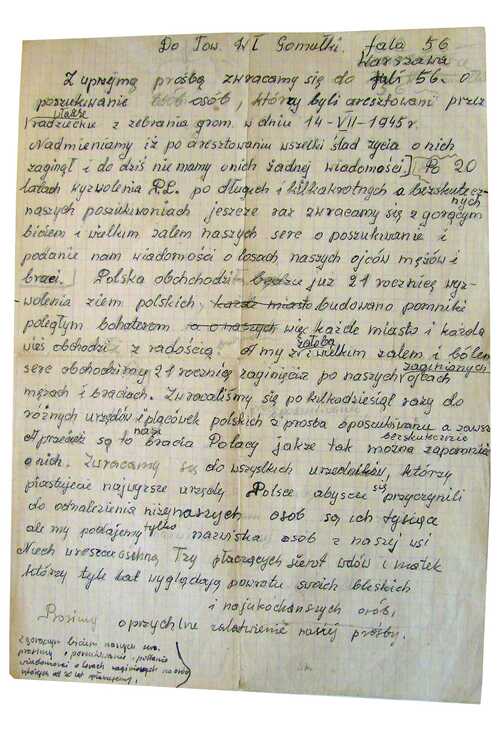 Do Tow. Wł Gomułki. fala 56
Warszawa
Z uprzejmą prośbą zwracamy się do fali 56. o
poszukiwanie osób, którzy byli aresztowani przez
władze
radzieckie z zebrania grom. w dniu 14-VII-1945r.
Nadmieniamy iż po aresztowaniu wszelki ślad życia o nich
zaginął i do dziś nie mamy o nich żadnej wiadomości] [Po 20
latach wyzwolenia P.L. po długich i kilkakrotnych a bezskutecz-
nych
naszych poszukiwaniach jeszcze raz zwracamy się z gorącym
biciem i wielkim żalem naszych serc o poszukiwanie i
podanie nam wiadomości o losach naszych ojców mężów i
braci.] Polska obchodzi będzie już 21 rocznicę wyz-
wolenia ziem polskich, każde miasto budowano pomniki
poległym bohaterom a o naszych więc każde miasto i każda
wieś obchodzi z radością. A my z wielkim żalem i bólem
żałobą
serc obchodzimy 21 rocznicę zaginięcia po naszych ojcach
zaginionych
mężach i braciach. Zwracaliśmy się po kilkadziesiąt razy do
różnych urzędów i placówek polskich z prośbą o poszukiwanie a zawsze
bezskutecznie
A przecież są to bracia Polacy jakże tak można zapomnieć
nasi
o nich. Zwracamy się do wszystkich urzędników, którzy
piastujecie najwyższe urzędy Polsce abyście się przyczynili
do odnalezienia naszych osób są ich tysiące
ale my podajemy tylko nazwiska osób z naszej wsi
Niech wreszcie Łzy płaczących sierot wdów i matek
którzy tyle lat wyglądają powrotu swoich bliskich
i najukochańszych osób,
Prosimy o przychylne załatwienie naszej prośby.
z gorącym biciem naszych serc
prosimy o poszukiwanie i podanie
wiadomości o losach zaginionych